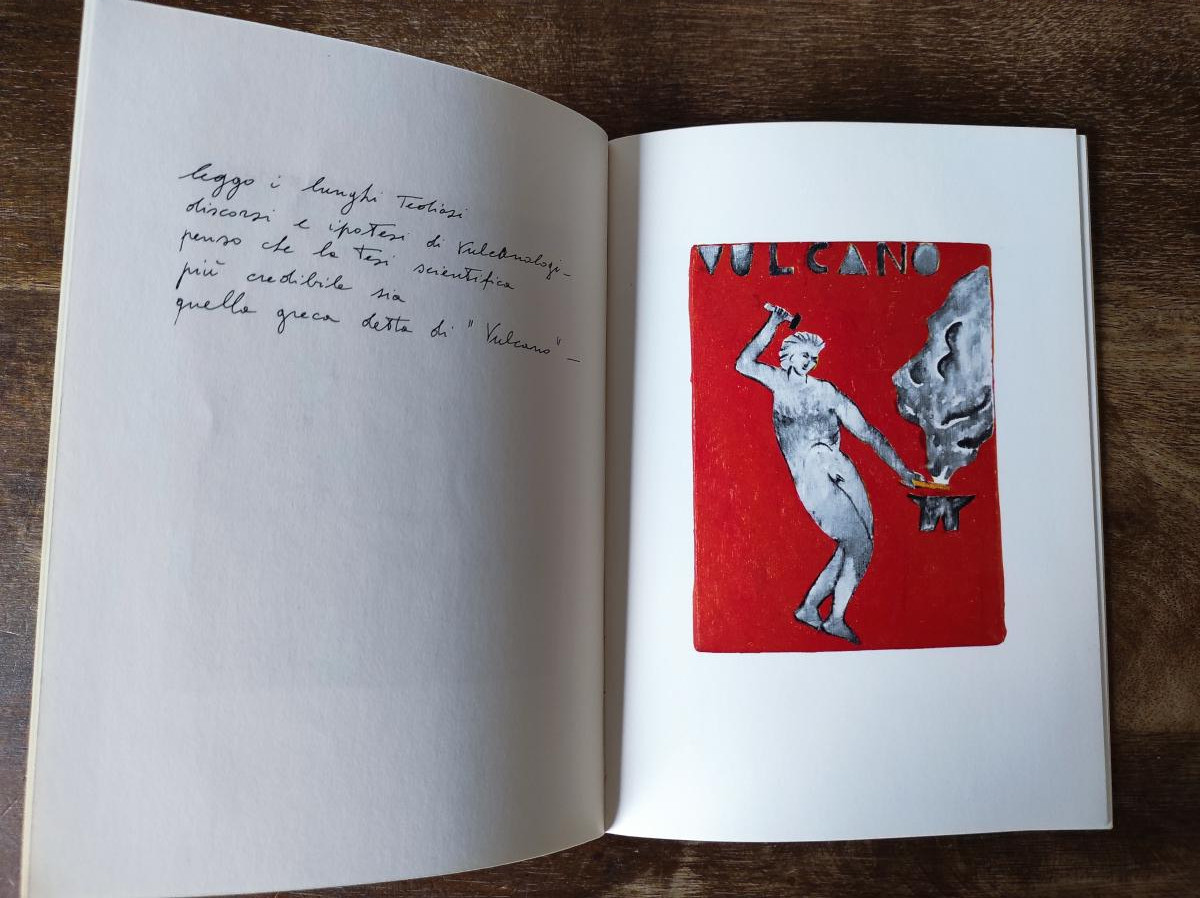 leggo i lunghi Tediosi
discorsi e ipotesi di Vulcanologi –
penso che la Tesi scientifica
più credibile sia
quella greca detta di "Vulcano" –
VULCANO